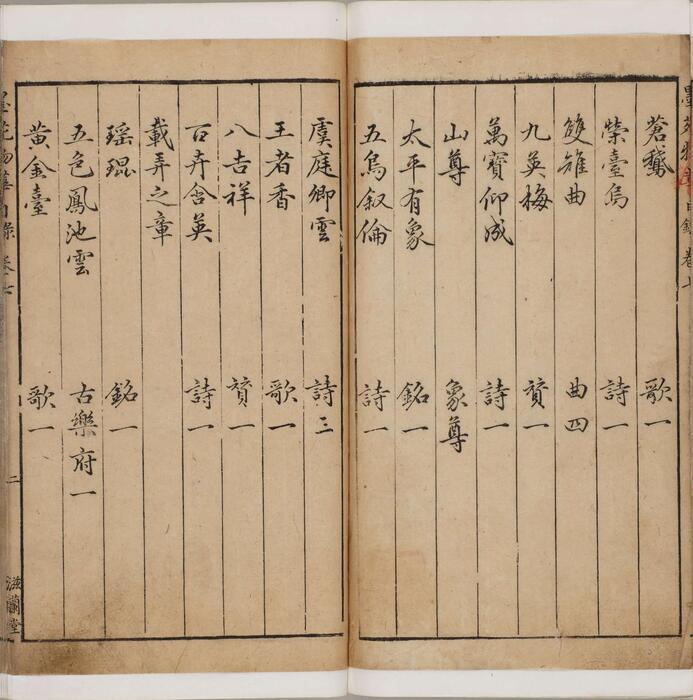 蒼鵞 歌一
榮臺烏 詩一
雙雉曲 曲四
九英梅 贊一
萬寶仰成 詩一
山尊 象尊
太平有象 銘一
五鳥叙倫 詩一
虞庭卿雲 詩三
王者香 歌一
八吉祥 贊一
百卉含英 詩一
載弄之章
瑶琨 銘一
五色鳳池雲 古樂府一
黃金臺 歌一
目錄 卷七
二
滋蘭堂